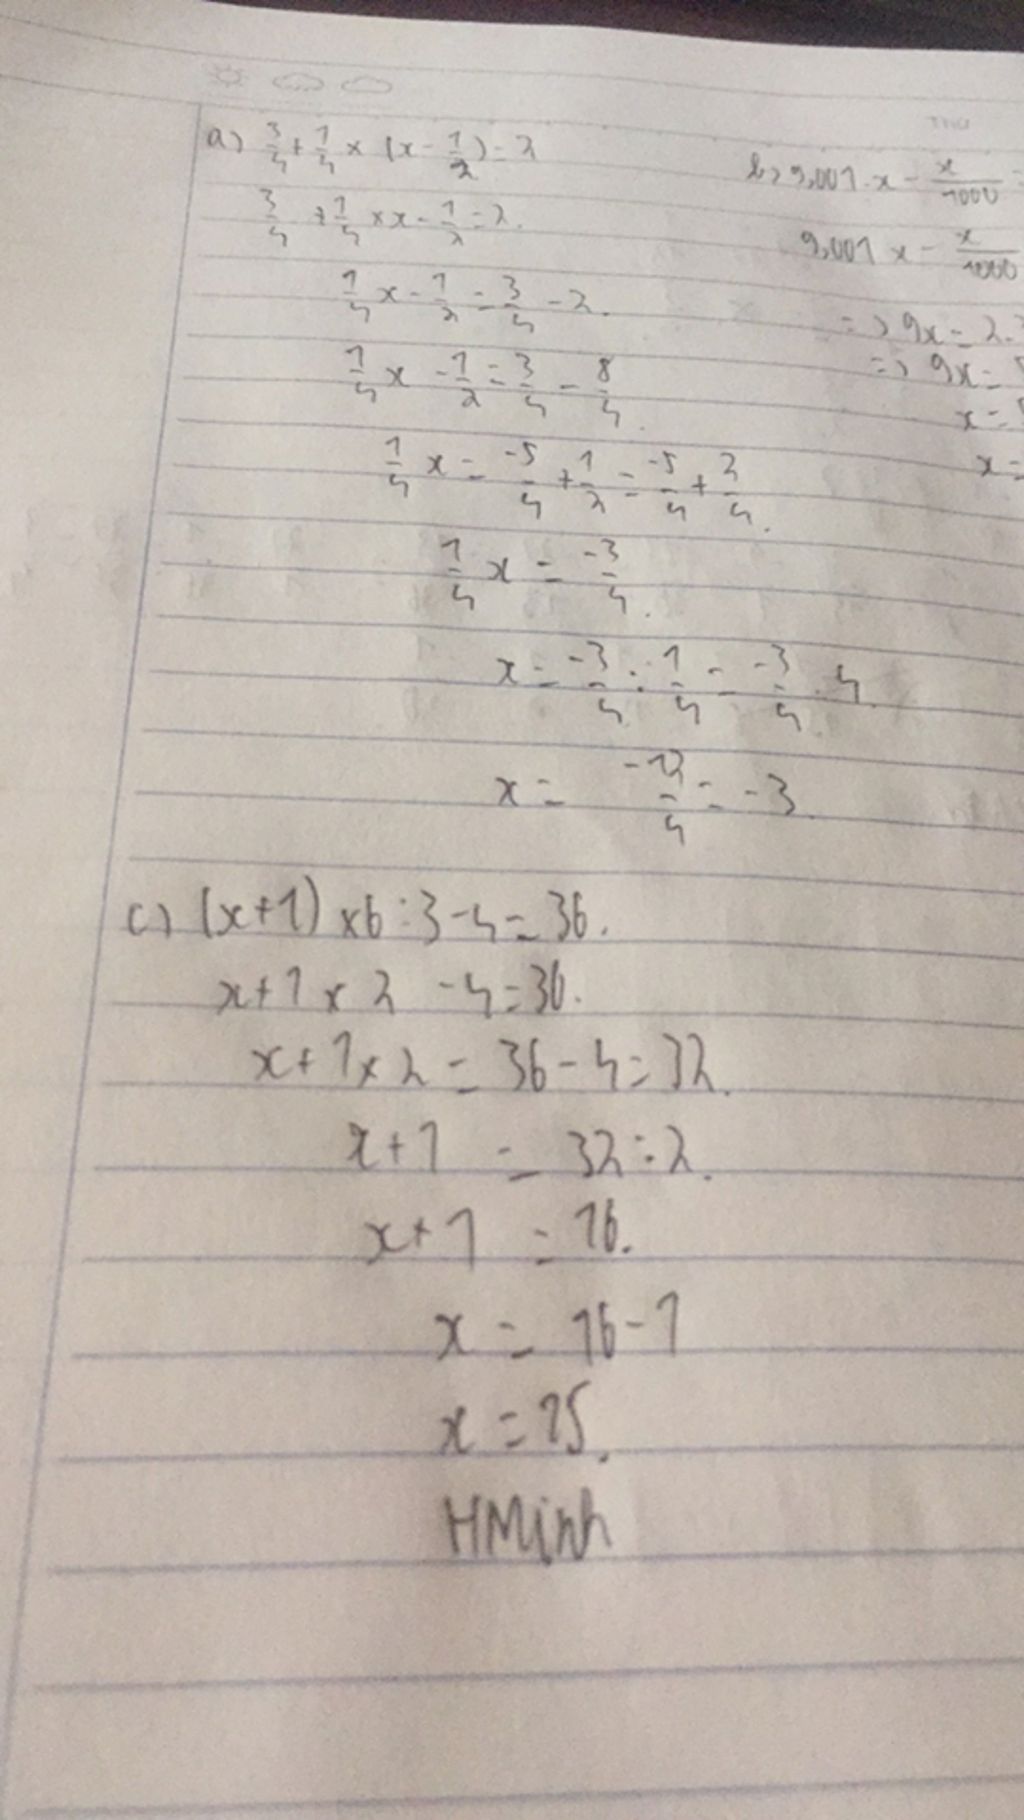 THU
a) 3/4 + 1/4 × (x - 1/2) = 2
3/4 + 1/4 × x - 1/2 = 2.
1/4 x - 1/2 = 3/4 - 2.
1/4 x - 1/2 = 3/4 - 8/4.
1/4 x = -5/4 + 1/2 = -5/4 + 2/4.
1/4 x = -3/4.
x = -3/4 : 1/4 = -3/4 . 4
x = -12/4 = -3
b) 9,001 . x - x/1000 =
9,001 x - x/1000
=> 9x = 2.
=> 9x =
x =
x =
c) (x+1) ×6 : 3 - 4 = 36.
x + 1 × 2 - 4 = 36.
x + 1 × 2 = 36 - 4 = 32.
x + 1 = 32 : 2.
x + 1 = 16.
x = 16 - 1
x = 15.
HMinh